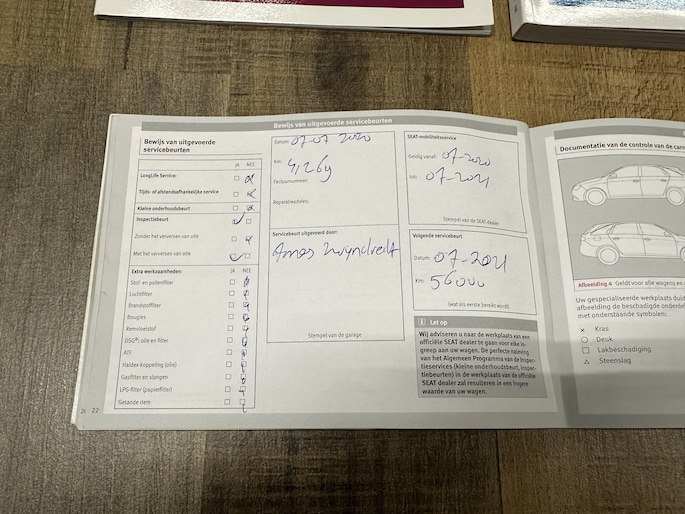 Bewijs van uitgevoerde servicebeurten
Bewijs van uitgevoerde
servicebeurten
JA NEE
LongLife Service:
Tijds- of afstandsafhankelijke service
Kleine onderhoudsbeurt
Inspectiebeurt
Zonder het verversen van olie
Met het verversen van olie
Extra werkzaamheden:
JA NEE
Stof- en pollenfilter
Luchtfilter
Brandstoffilter
Bougies
Remvloeistof
DSG®, olie en filter
ATF
Haldex-koppeling (olie)
Gasfilter en slangen
LPG-filter (papierfilter)
Getande riem
22
Datum: 07-07 2020
Km:
Factuurnummer:
Reparatieadvies:
Servicebeurt uitgevoerd door:
Amos
Stempel van de garage
SEAT-mobiliteitsservice
Geldig vanaf: 07-2020
tot: 07-2021
Stempel van de SEAT-dealer
Volgende servicebeurt
Datum: 07-2021
Km: 56000
(wat als eerste bereikt wordt)
i Let op
Wij adviseren u naar de werkplaats van een
officiële SEAT dealer te gaan voor elke in-
greep aan uw wagen. De perfecte naleving
van het Algemeen Programma van de Inspec-
tieservices (kleine onderhoudsbeurt, inspec-
tiebeurten) in de werkplaats van de officiële
SEAT dealer zal resulteren in een hogere
waarde van uw wagen.
Documentatie van de controle van de
Afbeelding 4 Geldt voor alle wagens
Uw gespecialiseerde werkplaats
afbeelding de beschadigde
met onderstaande symbolen:
× Kras
○ Deuk
□ Lakbeschadiging
△ Steenslag